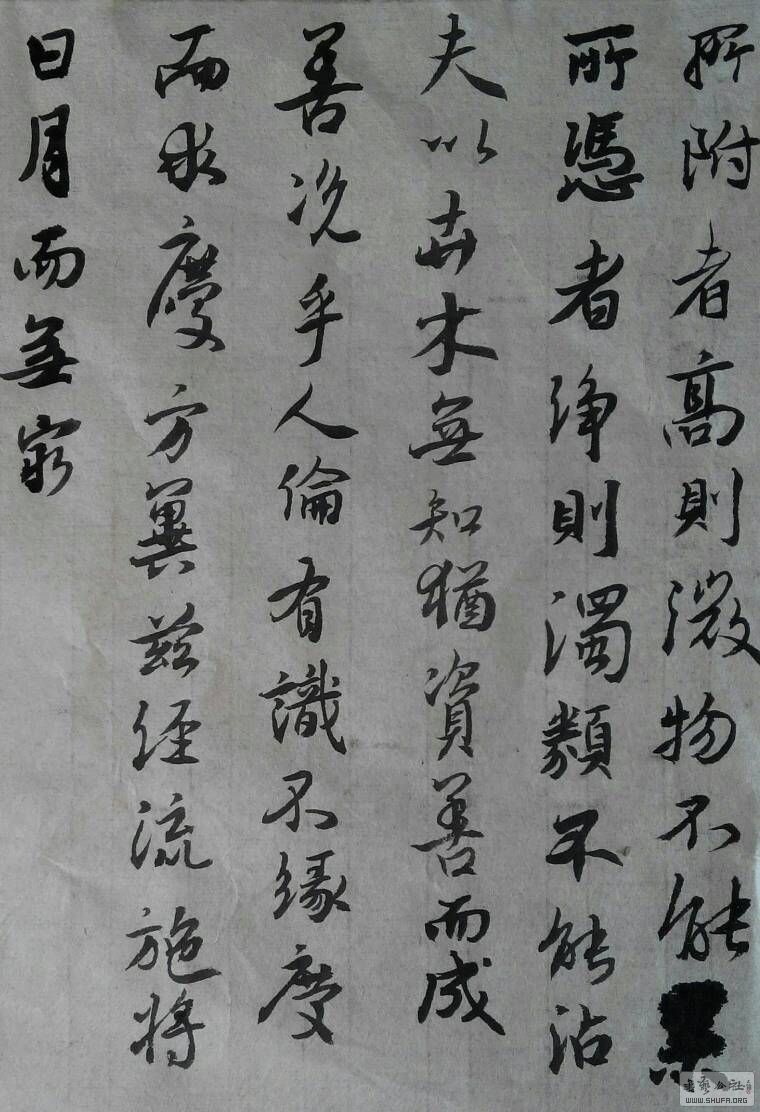 所附者高則微物不能
所憑者浄則濁類不能沾
夫以卉木無知猶資善而成
善况乎人倫有識不緣慶
而求慶方冀茲經流施將
日月而無窮
書藝公社
WWW.SHUFA.ORG